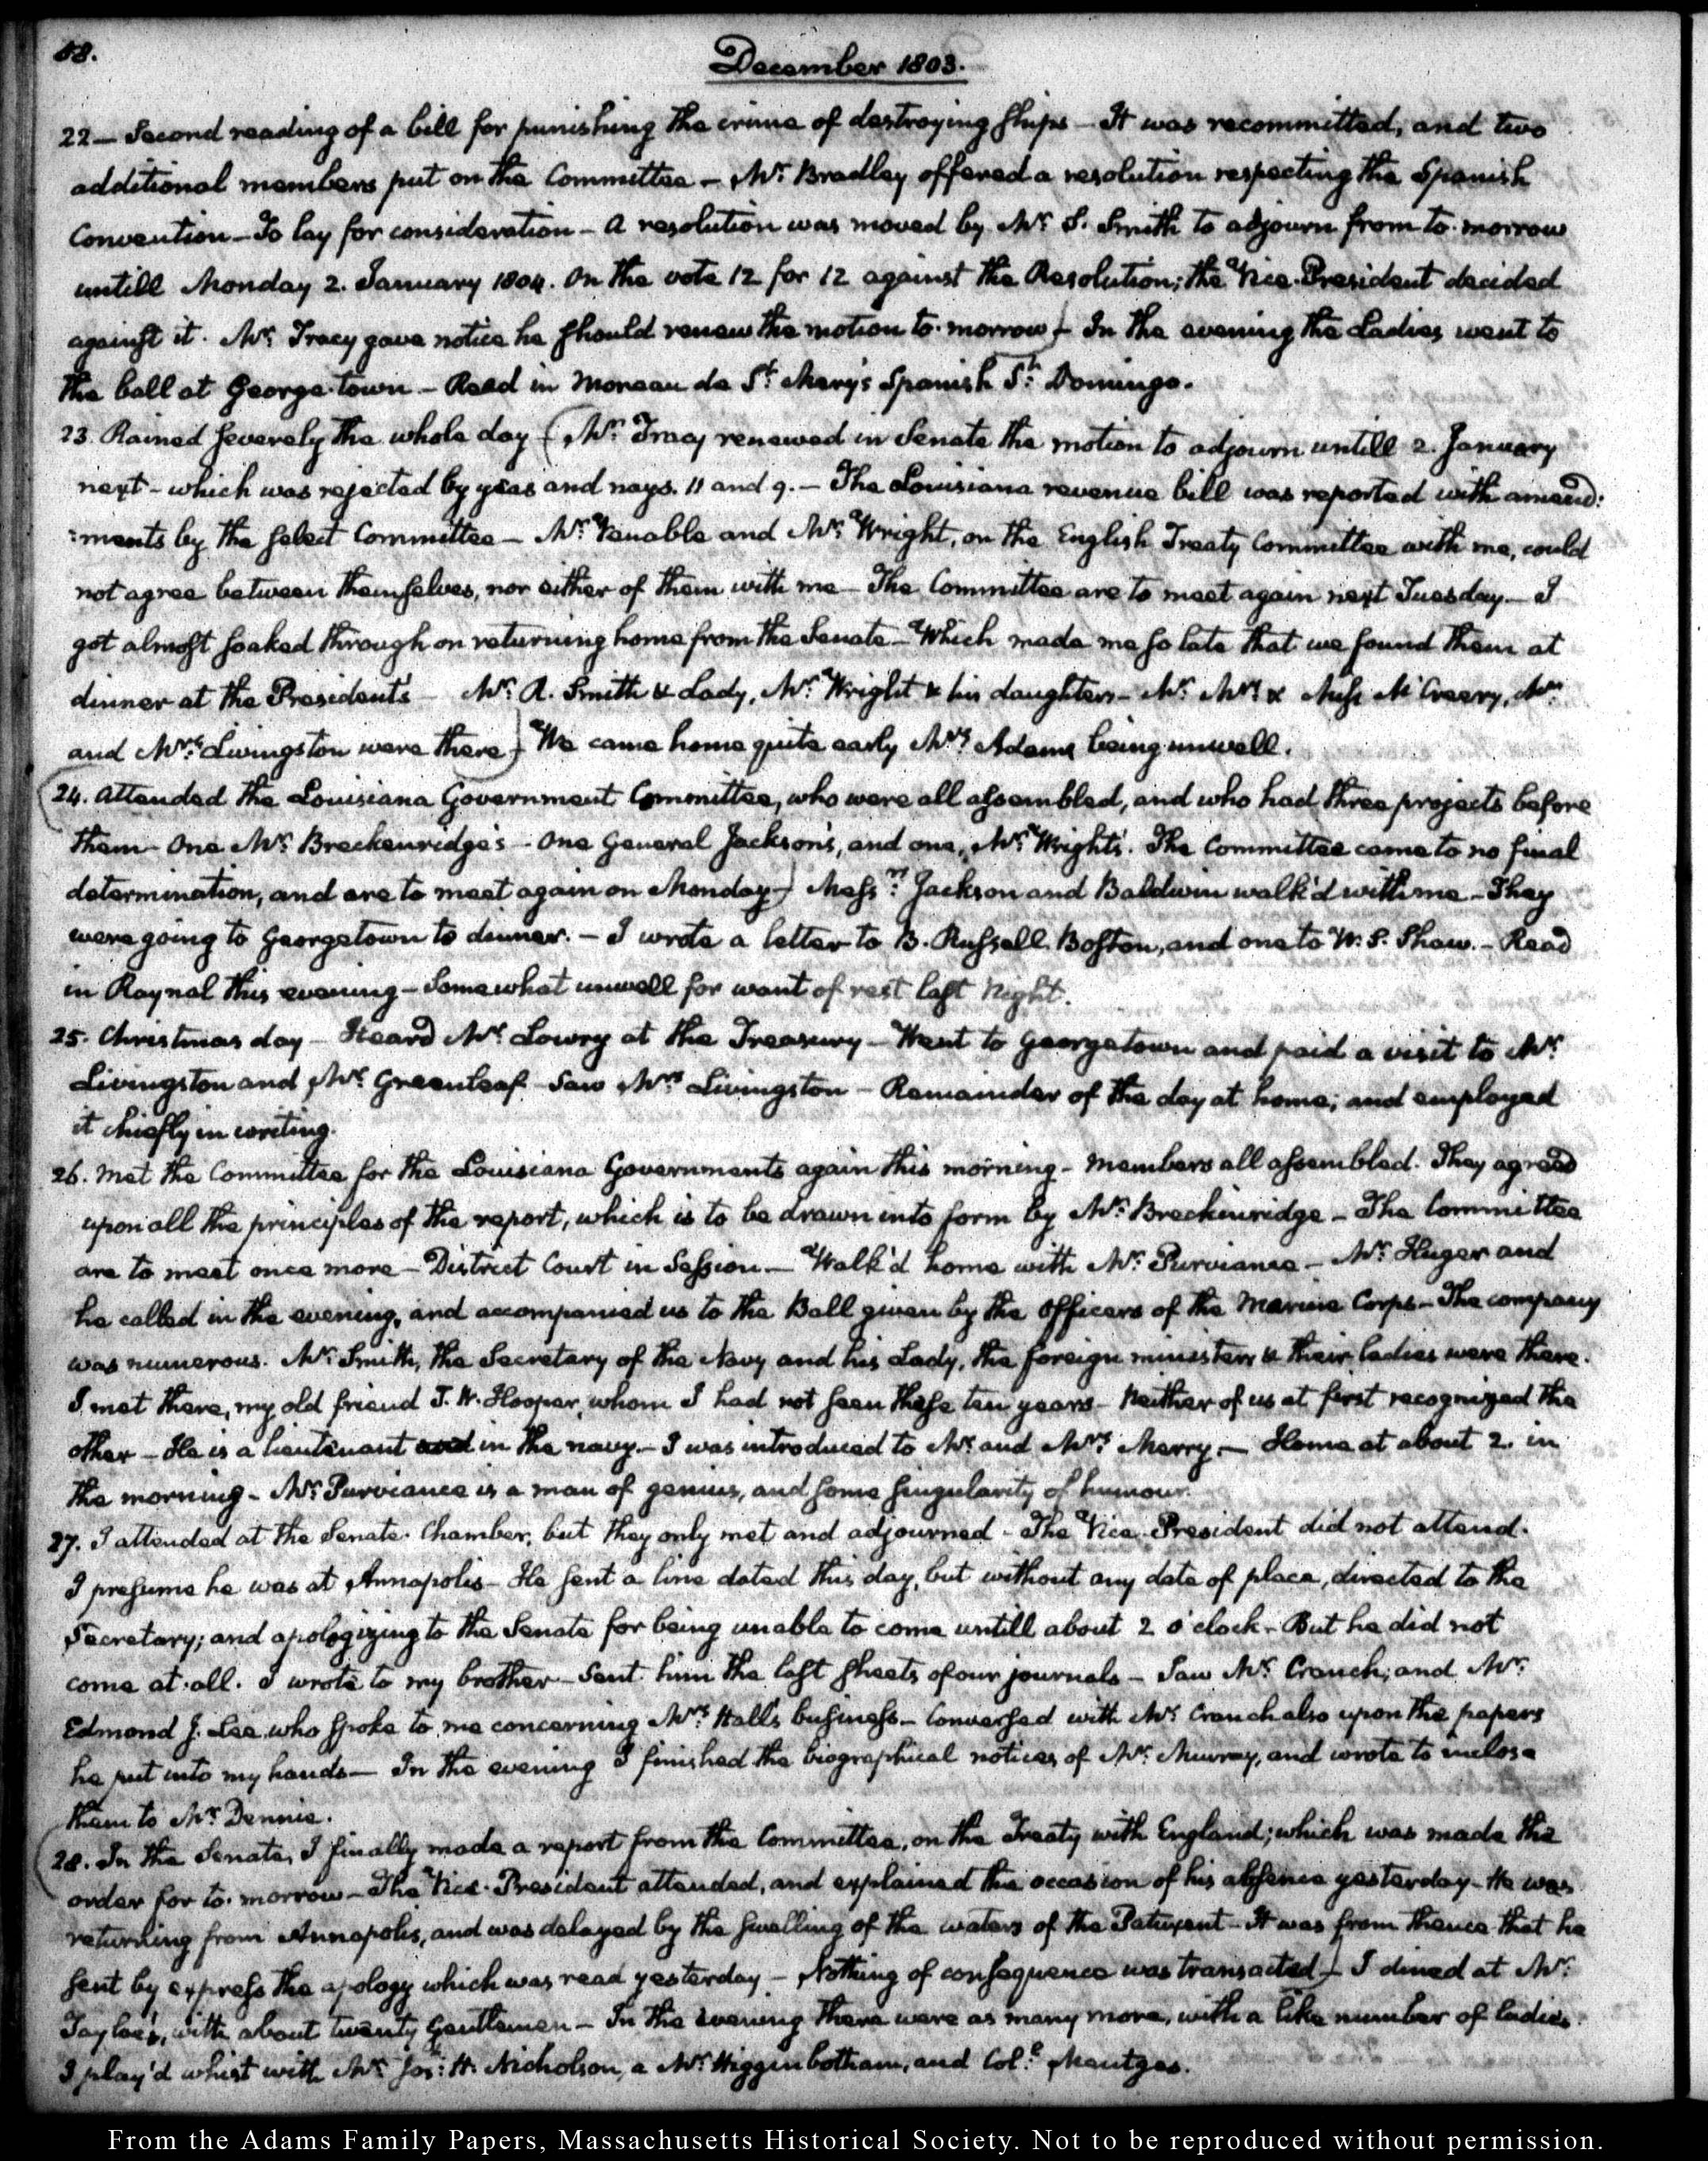 58.
December 1803.
22 — Second reading of a bill for punishing the crime of destroying ships — It was recommitted, and two
additional members put on the Committee — Mr. Bradley offered a resolution respecting the Spanish
Convention — To lay for consideration — A resolution was moved by Mr. S. Smith to adjourn from to-morrow
untill Monday 2. January 1804. On the vote 12 for 12 against the Resolution; the Vice-President decided
against it. Mr. Tracy gave notice he should renew the motion to-morrow) — In the evening the Ladies went to
the ball at George-town — Read in Moreau de St. Mery's Spanish St. Domingo.
23. Rained severely the whole day — (Mr. Tracy renewed in Senate the motion to adjourn untill 2. January
next — which was rejected by yeas and nays. 11 and 9. — The Louisiana revenue bill was reported with amend:
:ments by the select Committee — Mr. Venable and Mr. Wright, on the English Treaty Committee with me, could
not agree between themselves, nor either of them with me — The Committee are to meet again next Tuesday — I
got almost soaked through on returning home from the Senate — Which made me so late that we found them at
dinner at the President's — Mr. R. Smith & Lady, Mr. Wright & his daughters — Mr. Mrs. & Miss McCreery, Mr.
and Mrs. Livingston were there) — We came home quite early Mrs. Adams being unwell.
(24. Attended the Louisiana Government Committee, who were all assembled, and who had three projects before
them — One Mr. Breckenridge's — One General Jackson's, and one, Mr. Wright's. The Committee came to no final
determination, and are to meet again on Monday —) Messrs. Jackson and Baldwin walk'd with me — They
were going to Georgetown to dinner. — I wrote a letter to B. Russell. Boston, and one to W. S. Shaw. — Read
in Raynal this evening — Somewhat unwell for want of rest last Night.
25. Christmas day — Heard Mr. Lowry at the Treasury — Went to Georgetown and paid a visit to Mr.
Livingston and Mr. Greenleaf — Saw Mrs. Livingston — Remainder of the day at home; and employed
it chiefly in writing.
26. Met the Committee for the Louisiana Governments again this morning — Members all assembled. They agreed
upon all the principles of the report, which is to be drawn into form by Mr. Breckinridge — The Committee
are to meet once more — District Court in Session — Walk'd home with Mr. Purviance — Mr. Huger and
he called in the evening, and accompanied us to the Ball given by the Officers of the Marine Corps — The company
was numerous. Mr. Smith, the Secretary of the Navy and his Lady, the foreign ministers & their ladies were there.
I met there, my old friend J. W. Hooper, whom I had not seen these ten years — Neither of us at first recognized the
other — He is a lieutenant in the navy. — I was introduced to Mr. and Mrs. Merry. — Home at about 2. in
the morning — Mr. Purviance is a man of genius, and some singularity of humour.
27. I attended at the Senate-Chamber, but they only met and adjourned — The Vice-President did not attend.
I presume he was at Annapolis — He sent a line dated this day, but without any date of place, directed to the
Secretary; and apologizing to the Senate for being unable to come untill about 2 o'clock — But he did not
come at all. I wrote to my brother — Sent him the last sheets of our journals — Saw Mr. Cranch, and Mr.
Edmond J. Lee who spoke to me concerning Mrs. Hall's business — Conversed with Mr. Cranch also upon the papers
he put into my hands — In the evening I finished the biographical notices of Mr. Murray, and wrote to inclose
them to Mr. Dennie.
(28. In the Senate, I finally made a report from the Committee, on the Treaty with England; which was made the
order for to-morrow — The Vice-President attended, and explained the occasion of his absence yesterday — He was
returning from Annapolis, and was delayed by the swelling of the waters of the Patuxent — It was from thence that he
sent by express the apology which was read yesterday — Nothing of consequence was transacted) — I dined at Mr.
Tayloe's, with about twenty Gentlemen — In the evening there were as many more, with a like number of ladies.
I play'd whist with Mr. Jos: H. Nicholson, a Mr. Higginbotham, and Col: Mentges.
From the Adams Family Papers, Massachusetts Historical Society. Not to be reproduced without permission.